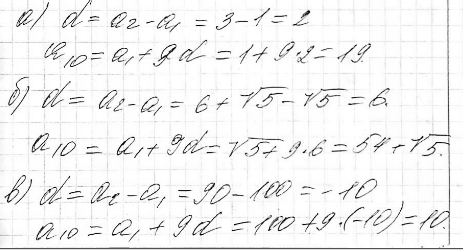 а) d = a₂ - a₁ = 3 - 1 = 2
a₁₀ = a₁ + 9d = 1 + 9·2 = 19.
б) d = a₂ - a₁ = 6 + √5 - √5 = 6.
a₁₀ = a₁ + 9d = √5 + 9·6 = 54 + √5.
в) d = a₂ - a₁ = 90 - 100 = -10
a₁₀ = a₁ + 9d = 100 + 9·(-10) = 10.